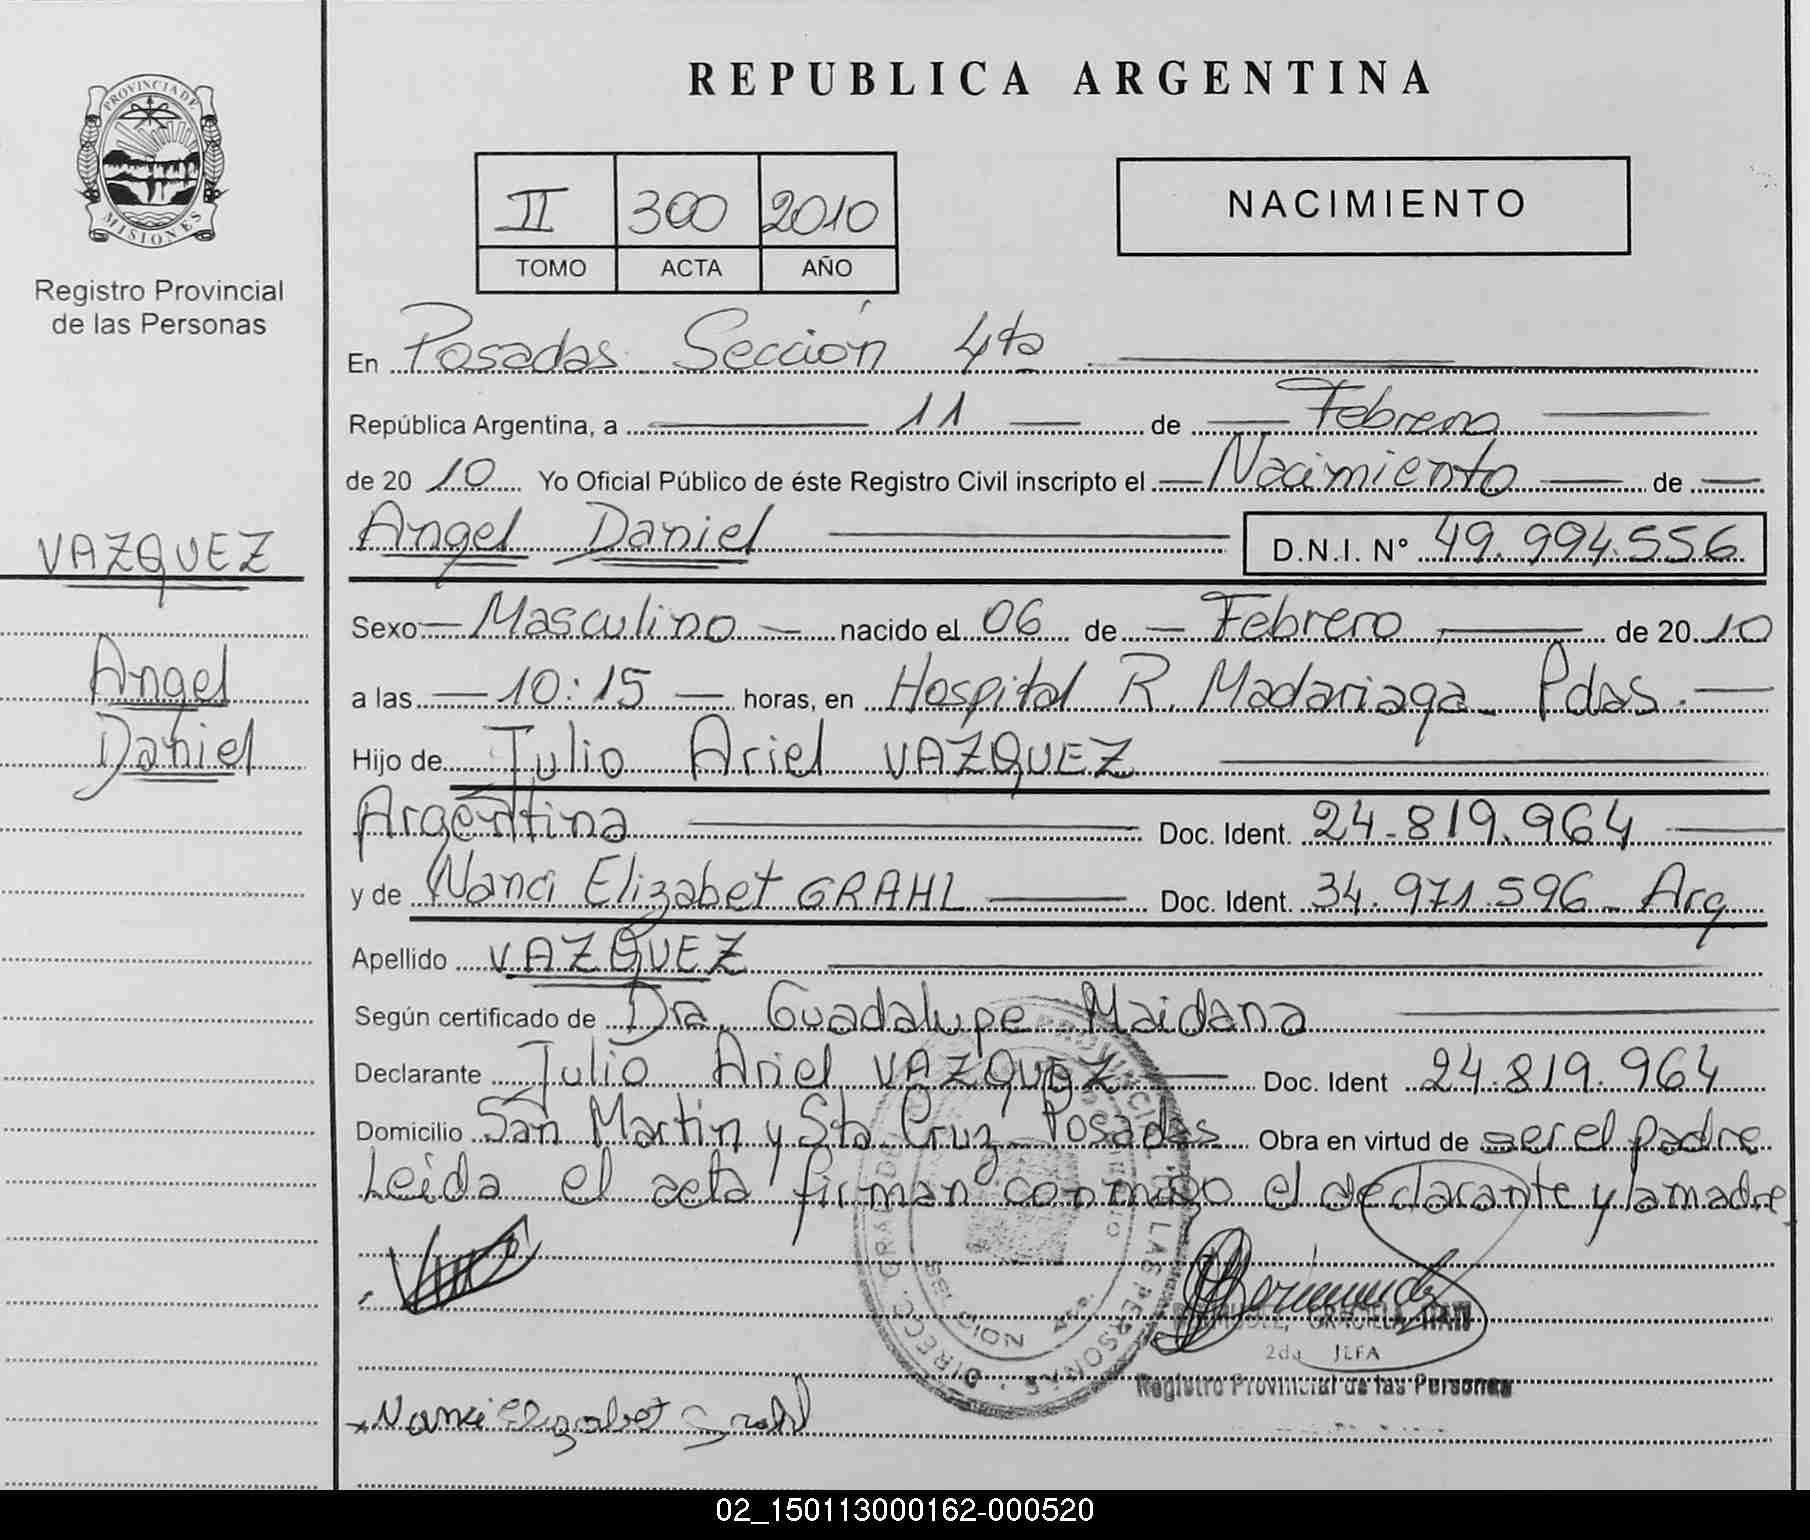 REPUBLICA ARGENTINA
PROVINCIA DE
MISIONES
Registro Provincial
de las Personas
II 300 2010
TOMO ACTA AÑO
NACIMIENTO
En Posadas Sección 4ta
República Argentina, a 11 de Febrero
de 20 10 Yo Oficial Público de éste Registro Civil inscripto el Nacimiento de
VAZQUEZ
Angel
Daniel
Angel Daniel D.N.I. Nº 49.994.556
Sexo Masculino nacido el 06 de Febrero de 20 10
a las 10:15 horas, en Hospital R. Madariaga - Pdas.
Hijo de Julio Ariel VAZQUEZ
Argentina Doc. Ident. 24.819.964
y de Nanci Elizabet GRAHL Doc. Ident. 34.971.596 - Arg
Apellido VAZQUEZ
Según certificado de Dra. Guadalupe Maidana
Declarante Julio Ariel VAZQUEZ Doc. Ident 24.819.964
Domicilio San Martin y Sta Cruz - Posadas Obra en virtud de ser el padre
Leida el acta firman conmigo el declarante y la madre
GRACIELA
2da JEFA
Registro Provincial de las Personas
Nanci Elizabet Grahl
02_150113000162-000520